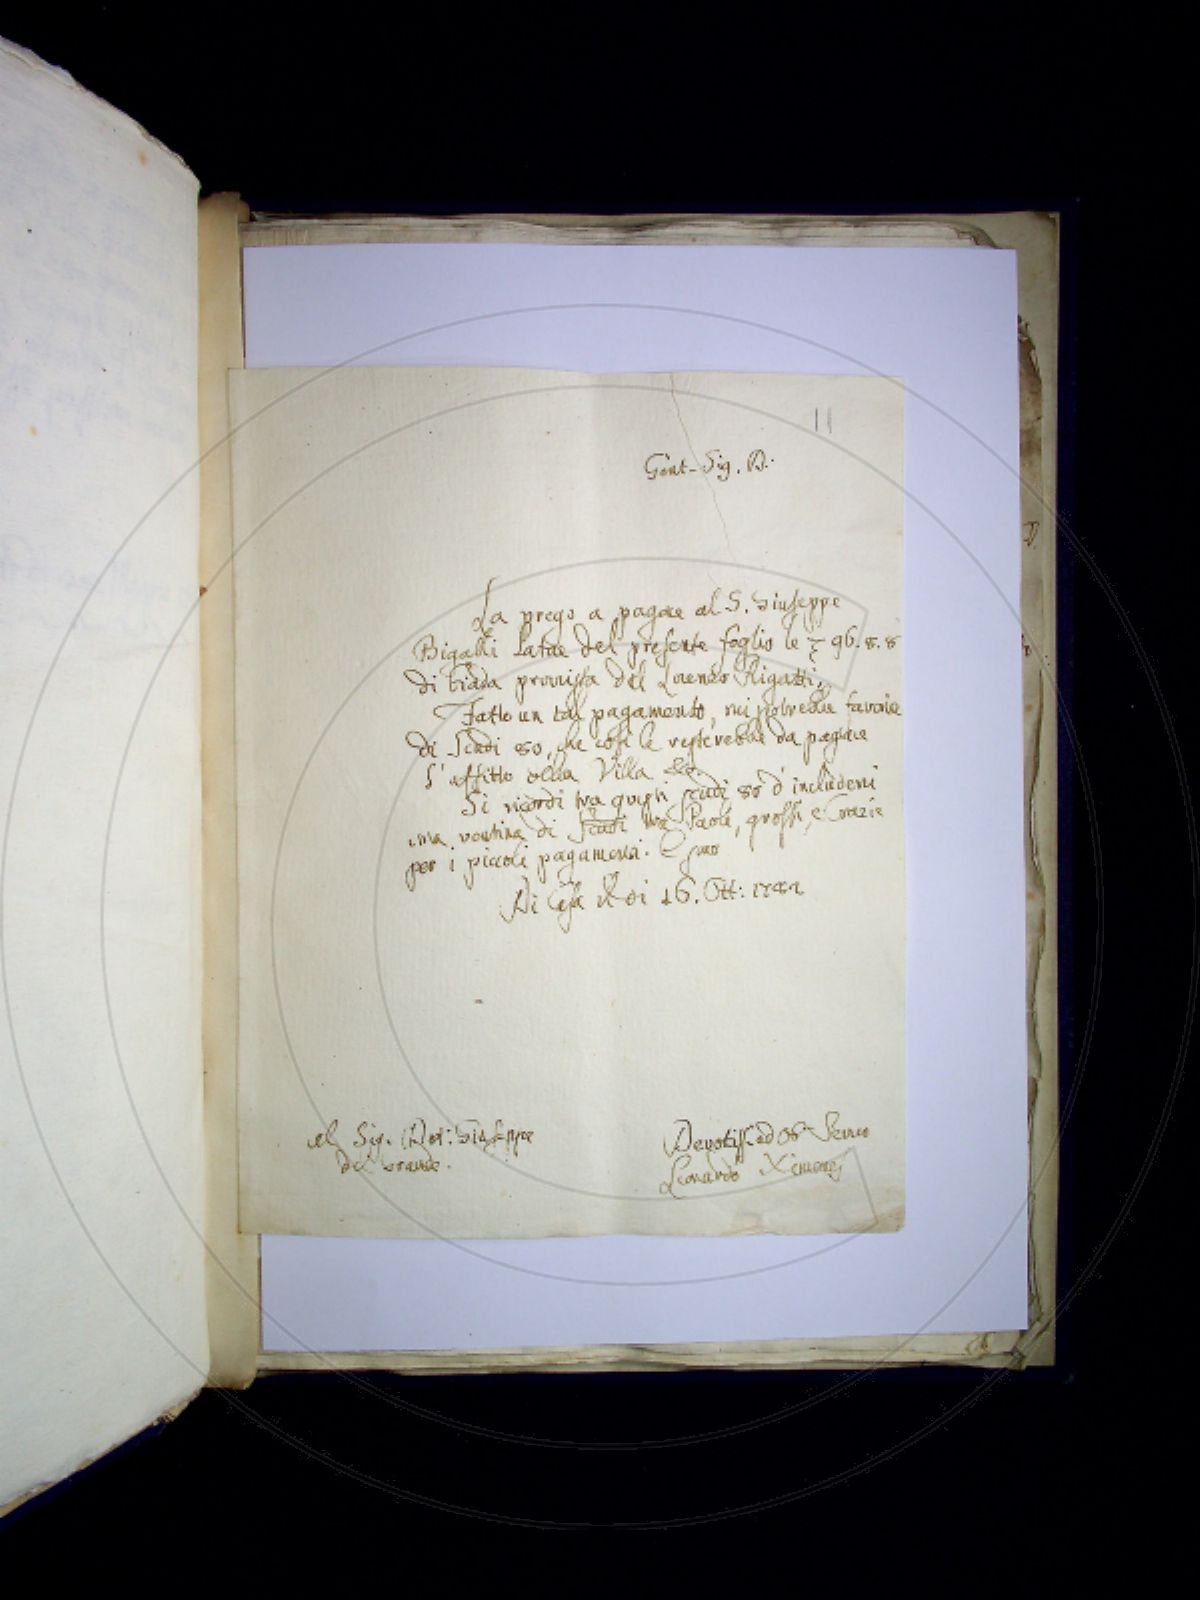 11
Gent. Sig. P.
La prego a pagare al S. Giuseppe
Bigalli latore del presente foglio le 96.8.8
di biada provvista del Lorenzo Rigatti.
Fatto un tal pagamento, mi potrebbe favorire
di Scudi 80, che così le resterebbe da pagare
l'affitto della Villa &c.
Si ricordi tra questi scudi 80 d'includervi
una ventina di Scudi tra Paoli, grossi, e Crazie
per i piccoli pagamenti. E sono
Di Casa di 16. Ott:
Al Sig. Giuseppe
del
Devotiss. ed Ob. Servo
Leonardo Ximenes